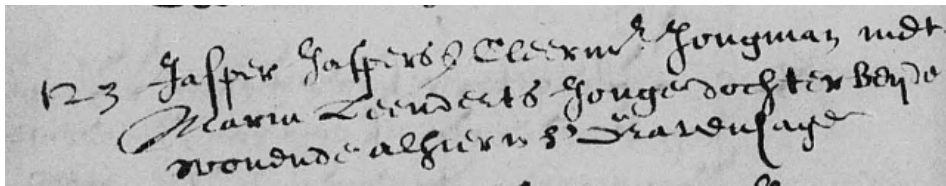 123 Jasper Jaspersz Cleermr Jongman mdt
Maria Leenderts Jongedochter Beyde
wonende alhier in s'Gravenhage